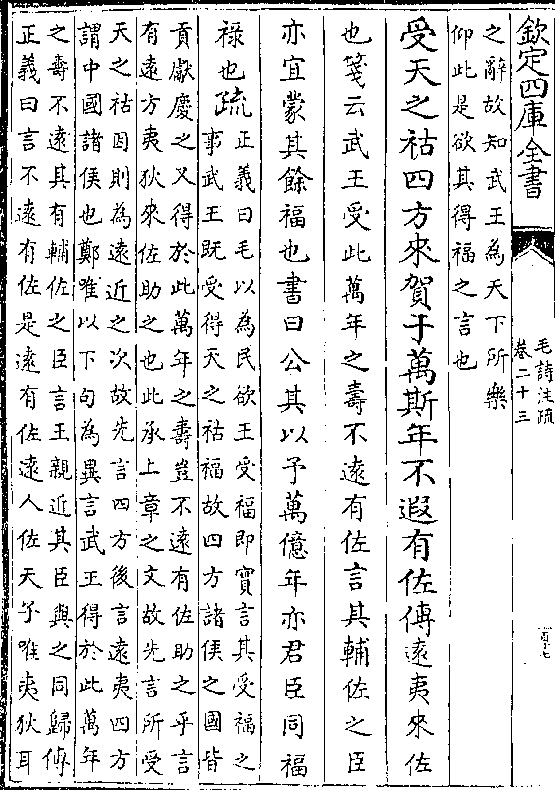 欽定四庫全書
毛詩注疏
卷二十三
之辭故知武王為天下所樂
仰此是欲其得福之言也
受天之祜四方來賀于萬斯年不遐有佐傳遠夷來佐
也箋云武王受此萬年之壽不遠有佐言其輔佐之臣
亦宜蒙其餘福也書曰公其以予萬億年亦君臣同福
祿也疏
正義曰毛以為民欲王受福即實言其受福之
事武王既受得天之祜福故四方諸侯之國皆
貢獻慶之又得於此萬年之壽豈不遠有佐助之乎言
有遠方夷狄來佐助之也此承上章之文故先言所受
天之祜因則為遠近之次故先言四方後言遠夷四方
謂中國諸侯也鄭唯以下句為異言武王得於此萬年
之壽不遠其有輔佐之臣言王親近其臣與之同歸傳
正義曰言不遠有佐是遠有佐遠人佐天子唯夷狄耳